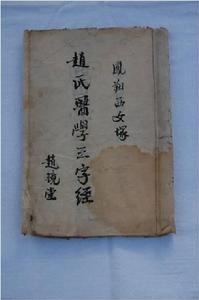 鳳翔西女塚
趙氏醫學三字經
趙琬堂